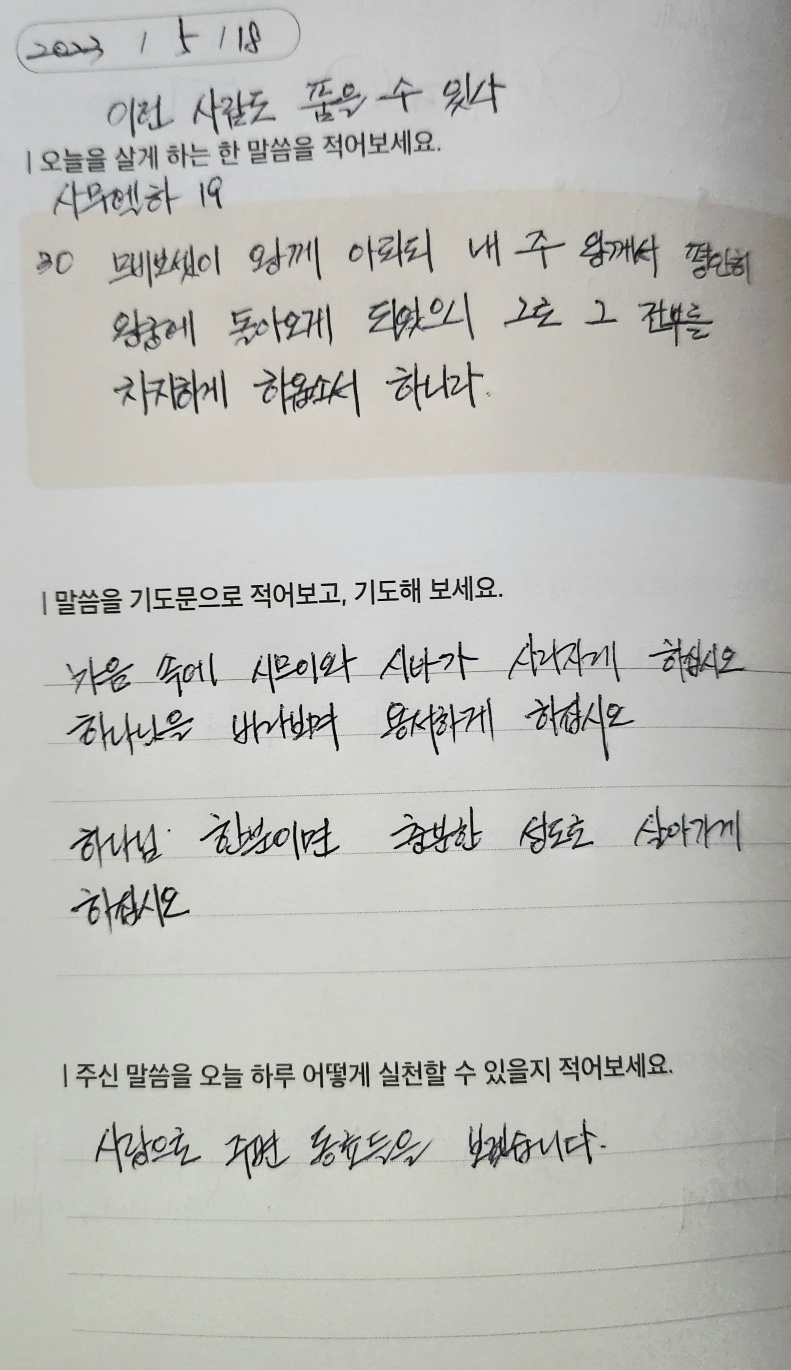 2023 / 5 / 18
이런 사람도 품을 수 있나
| 오늘을 살게 하는 한 말씀을 적어보세요.
사무엘하 19
30 므비보셋이 왕께 아뢰되 내 주 왕께서 평안히
왕궁에 돌아오게 되었으니 그로 그 전부를
차지하게 하옵소서 하니라.
| 말씀을 기도문으로 적어보고, 기도해 보세요.
마음 속에 시므이와 시바가 사라지게 하십시오
하나님을 바라보며 용서하게 하십시오
하나님 한분이면 충분한 성도로 살아가게
하십시오
| 주신 말씀을 오늘 하루 어떻게 실천할 수 있을지 적어보세요.
사랑으로 주변 동료들을 보겠습니다.